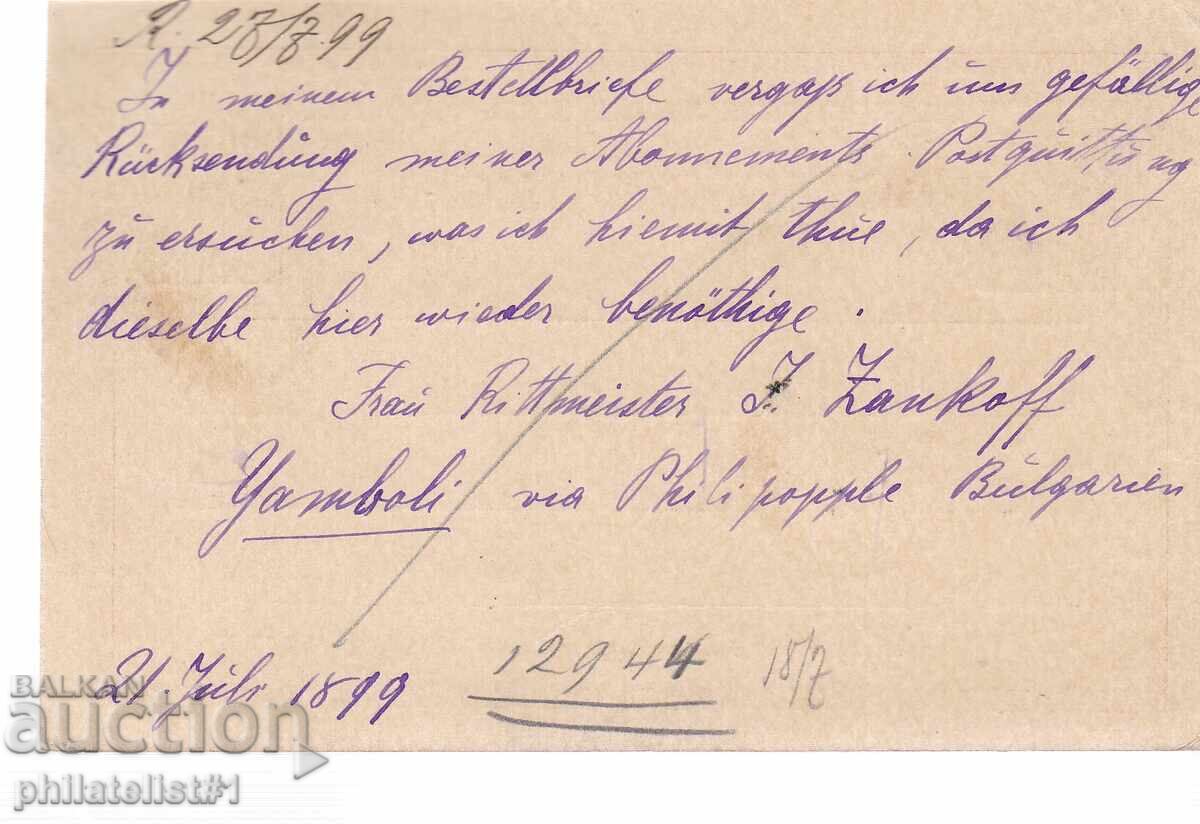 R. 27/7.99
In meinem Bestellbriefe vergaß ich um gefällige
Rücksendung meiner Abonnements-Postquittung
zu ersuchen, was ich hiemit thue, da ich
dieselbe hier wieder benöthige.
Frau Rittmeister I. Zankoff
Yamboli via Philipopple Bulgarien
21. Juli 1899
12944 18/7
BALKAN
auction
philatelist#1